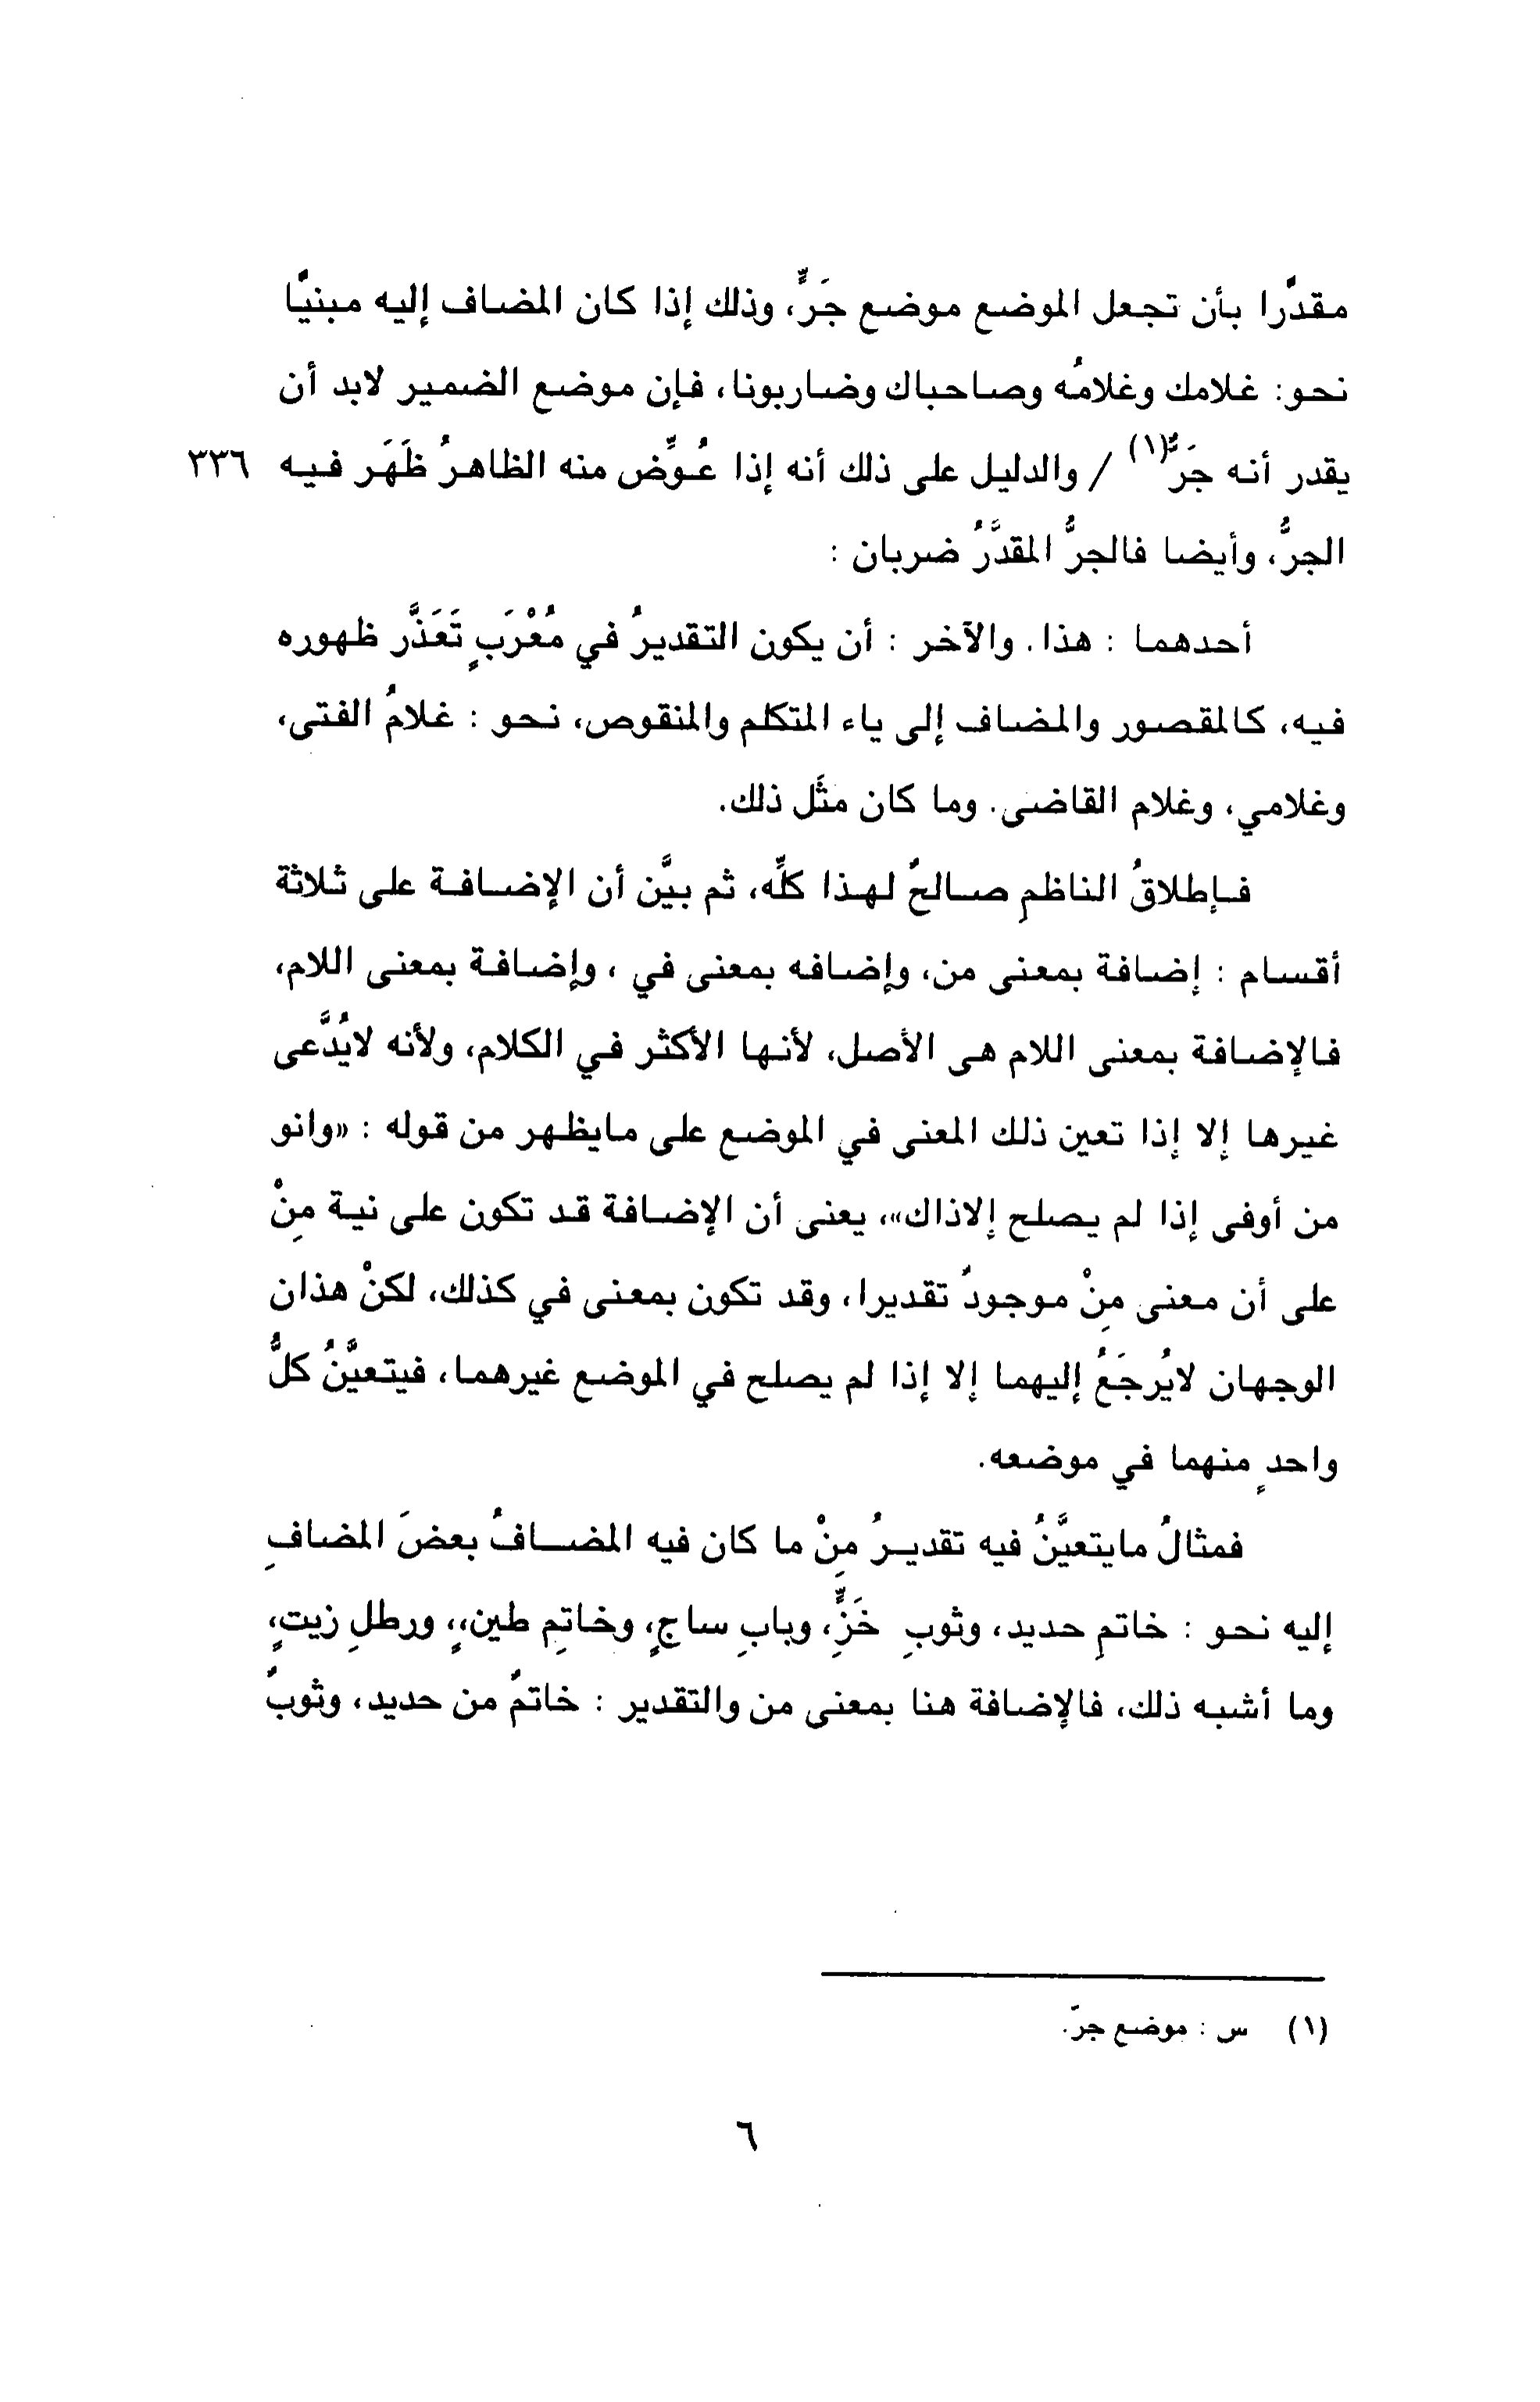 مقدَّرا بأن تجعل الموضع موضع جَرٍّ، وذلك إذا كان المضاف إليه مبنيًّا
نحو: غلامك وغلامُه وصاحباك وضاربونا، فإن موضع الضمير لابد أن
يقدر أنه جَرٌّ(١) / والدليل على ذلك أنه إذا عُوِّض منه الظاهرُ ظَهَر فيه ٣٣٦
الجرُّ، وأيضا فالجرُّ المقدَّرُ ضربان :
أحدهما : هذا. والآخر : أن يكون التقديرُ في مُعْرَبٍ تَعَذَّر ظهوره
فيه، كالمقصور والمضاف إلى ياء المتكلم والمنقوص، نحو : غلامُ الفتى،
وغلامي، وغلام القاضى. وما كان مثَل ذلك.
فإطلاقُ الناظمِ صالحُ لهذا كلِّه، ثم بيَّن أن الإضافة على ثلاثة
أقسام : إضافة بمعنى من، وإضافه بمعنى في ، وإضافة بمعنى اللام،
فالإضافة بمعنى اللام هى الأصل، لأنها الأكثر في الكلام، ولأنه لايُدَّعى
غيرها إلا إذا تعين ذلك المعنى في الموضع على مايظهر من قوله : «وانو
من أوفى إذا لم يصلح إلاذاك»، يعنى أن الإضافة قد تكون على نية مِنْ
على أن معنى مِنْ موجودُ تقديرا، وقد تكون بمعنى في كذلك، لكنْ هذان
الوجهان لايُرجَعُ إليهما إلا إذا لم يصلح في الموضع غيرهما، فيتعيَّنُ كلُّ
واحدٍ منهما في موضعه.
فمثالُ مايتعيَّنُ فيه تقديرُ مِنْ ما كان فيه المضافُ بعضَ المضافِ
إليه نحو : خاتمِ حديد، وثوبِ خَزٍّ، وبابِ ساجٍ، وخاتِم طين،ٍ، ورطلِ زيتٍ،
وما أشبه ذلك، فالإضافة هنا بمعنى من والتقدير : خاتمُ من حديد، وثوبُ
(١) س : موضع جرّ.
٦